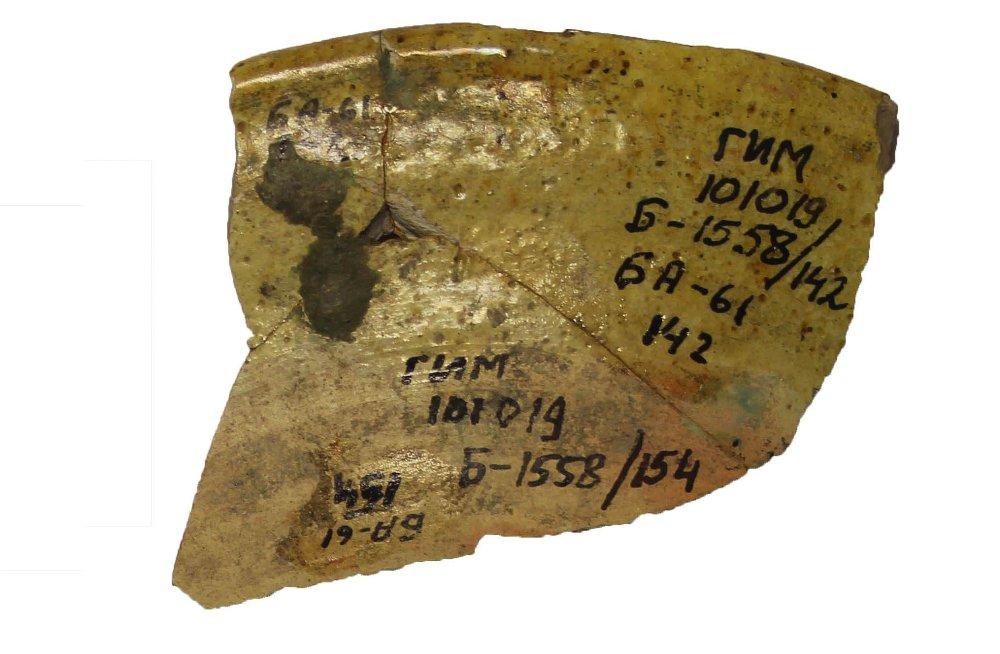 БА-61
ГИМ
101019/
Б-1558/142
БА-61
142
ГИМ
101019
Б-1558/154
154
БА-61